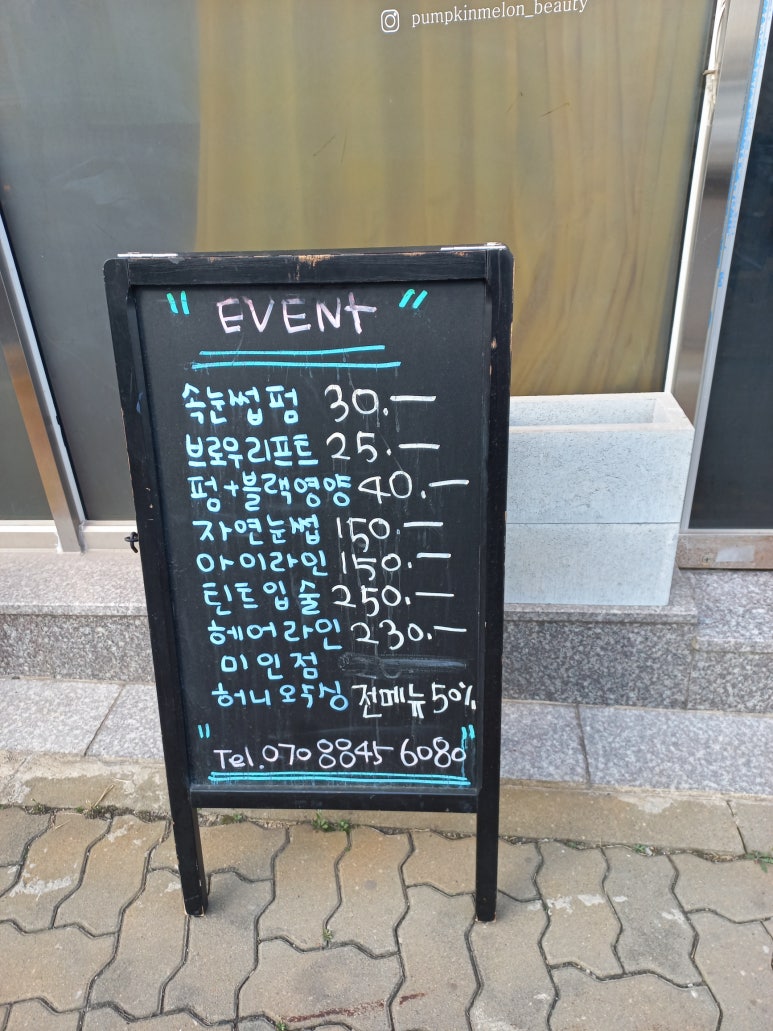 pumpkinmelon_beauty
" EVENT "
속눈썹펌 30.—
브로우리프트 25.—
펌+블랙영양 40.—
자연눈썹 150.—
아이라인 150.—
틴트입술 250.—
헤어라인 230.—
미인점
허니왁싱 전메뉴 50%
" Tel.070 8845 6080 "